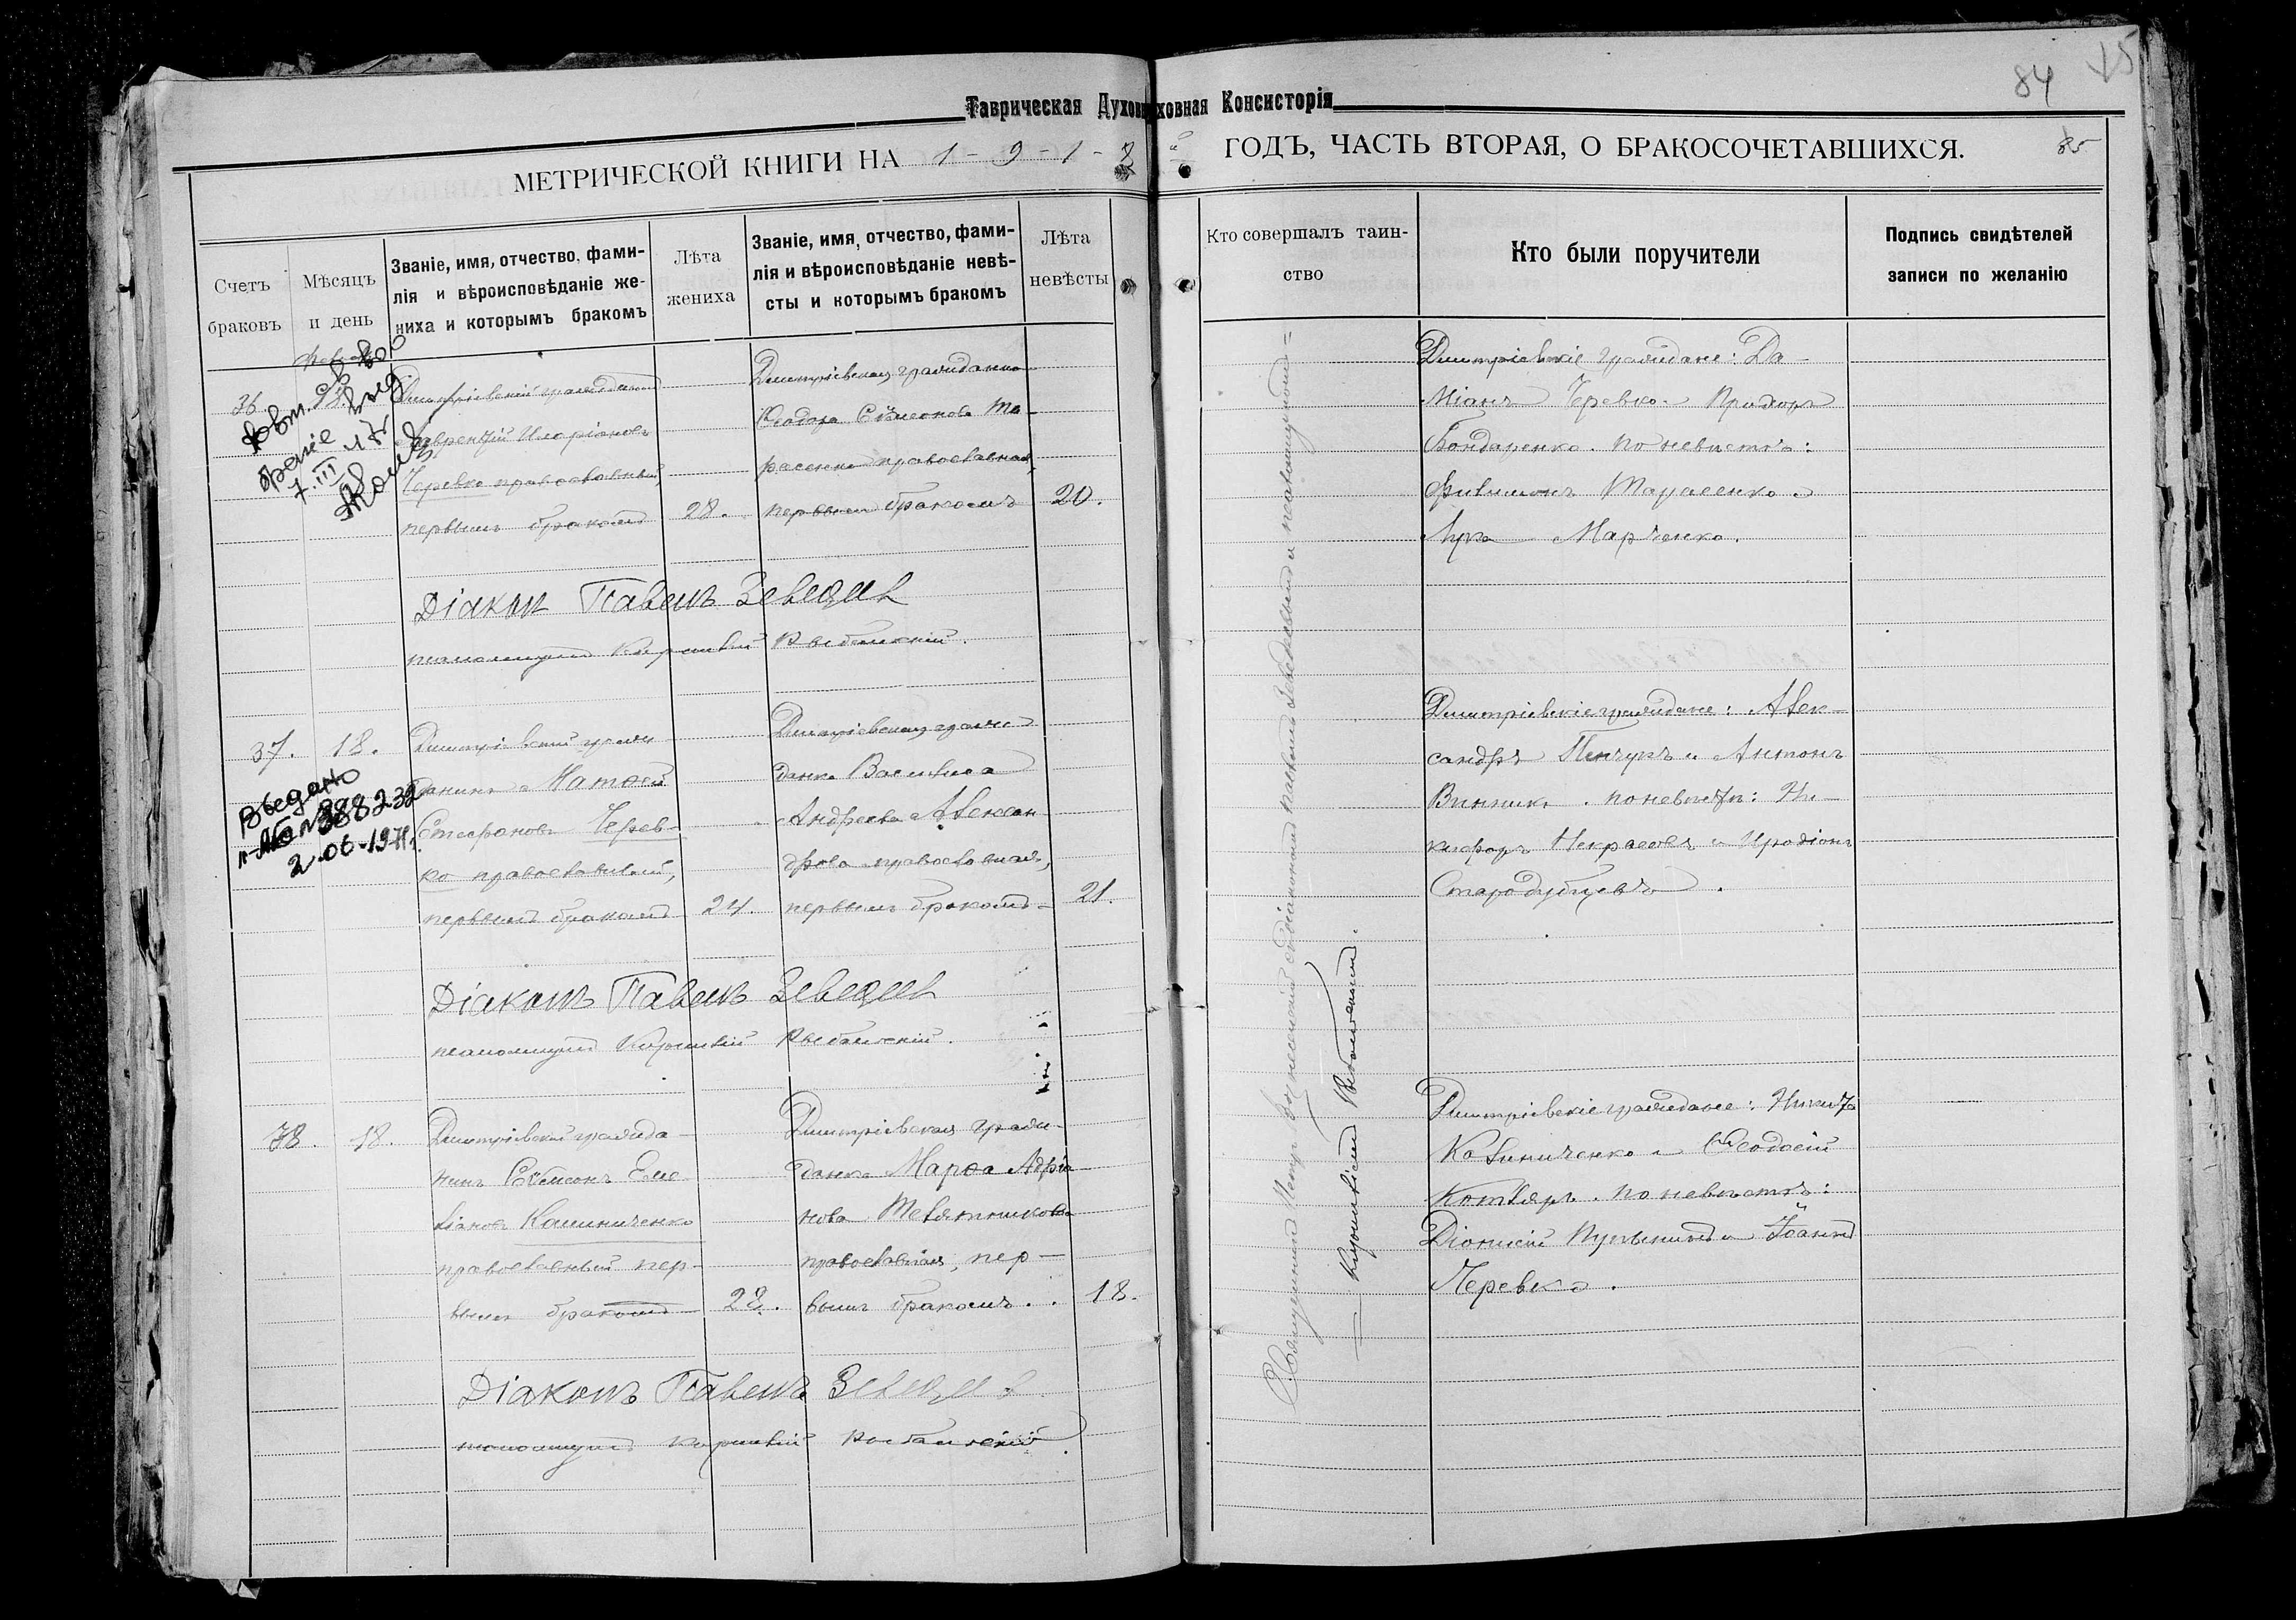 Таврическая Духовная Консисторія
84
85
МЕТРИЧЕСКОЙ КНИГИ НА 1-9-1-8 ГОДЪ, ЧАСТЬ ВТОРАЯ, О БРАКОСОЧЕТАВШИХСЯ.
Счетъ браковъ
Мѣсяцъ и день
Званіе, имя, отчество, фами-
лія и вѣроисповѣданіе же-
ниха и которымъ бракомъ
Лѣта
жениха
Званіе, имя, отчество, фами-
лія и вѣроисповѣданіе невѣ-
сты и которымъ бракомъ
Лѣта
невѣсты
Кто совершалъ таин-
ство
Кто были поручители
Подпись свидѣтелей
записи по желанію
36.
Дмитріевскій гражданинъ
Лаврентій Иларіоновъ
Черевко православный,
первымъ бракомъ
28.
Дмитріевская гражданка
Ѳеодора Сѵмеонова Та-
расенко православная,
первымъ бракомъ
20.
Дмитріевскіе граждане: Да-
міанъ Черевко и Прохоръ
Бондаренко. По невѣстѣ:
Филимонъ Тарасенко и
Лука Марченко.
Діаконъ Павелъ Зеведеев
псаломщикъ Кириллъ
37.
18.
Дмитріевскій граж
данинъ Матѳей
Стефановъ Черев-
ко православный,
первымъ бракомъ
24.
Дмитріевская граж
данка Василиса
Андреева Алексан
дрова православная,
первымъ бракомъ
21.
Дмитріевскіе граждане: Алек-
сандръ Пинчукъ и Антонъ
Винникъ. по невѣстѣ: Ни-
кифоръ Некрасовъ и Иродіонъ
Стародубцевъ.
Выдано
388232
2.06-1971г.
Діаконъ Павелъ Зеведеев
псаломщикъ
38.
18.
Дмитріевскій гражда-
нинъ Сѵмеонъ Еме-
ліановъ Калиниченко
православный пер-
вымъ бракомъ
28.
Дмитріевская граж-
данка Марѳа Адріа-
нова Телятникова
православная, пер-
вымъ бракомъ
18.
Дмитріевскіе граждане: Никита
Калиниченко и Ѳеодосій
Котляръ. по невѣстѣ:
Діонисій и Іоаннъ
Черевко.
Діаконъ Павелъ Зеведеев
псаломщикъ
Священникъ Петръ съ діакономъ Павломъ Зеведеевымъ и псаломщикомъ